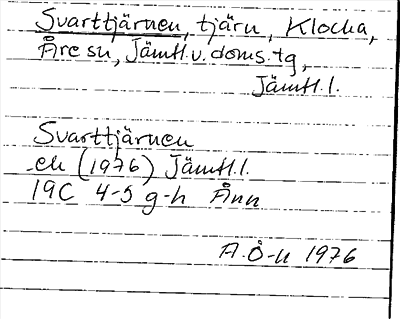 Svarttjärnen, tjärn, Klocka,
Åre sn, Jämtl.v. doms.tg,
Jämtl.l.
Svarttjärnen
ek (1976) Jämtl.l.
19C 4-5 g-h Ånn
A.Ö-n 1976